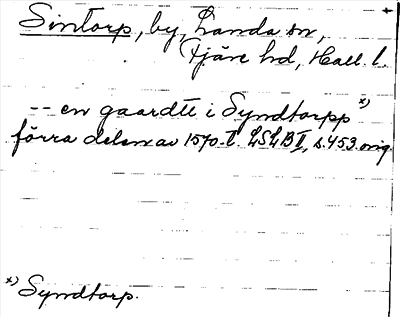 Sintorp, by, Landa sn,
Fjäre hd, Hall. l.
-- en gaardtt i Syndtorpp x)
förra delen av 1570-t. LSLB II, s. 453. orig.
x) Syndtorp.